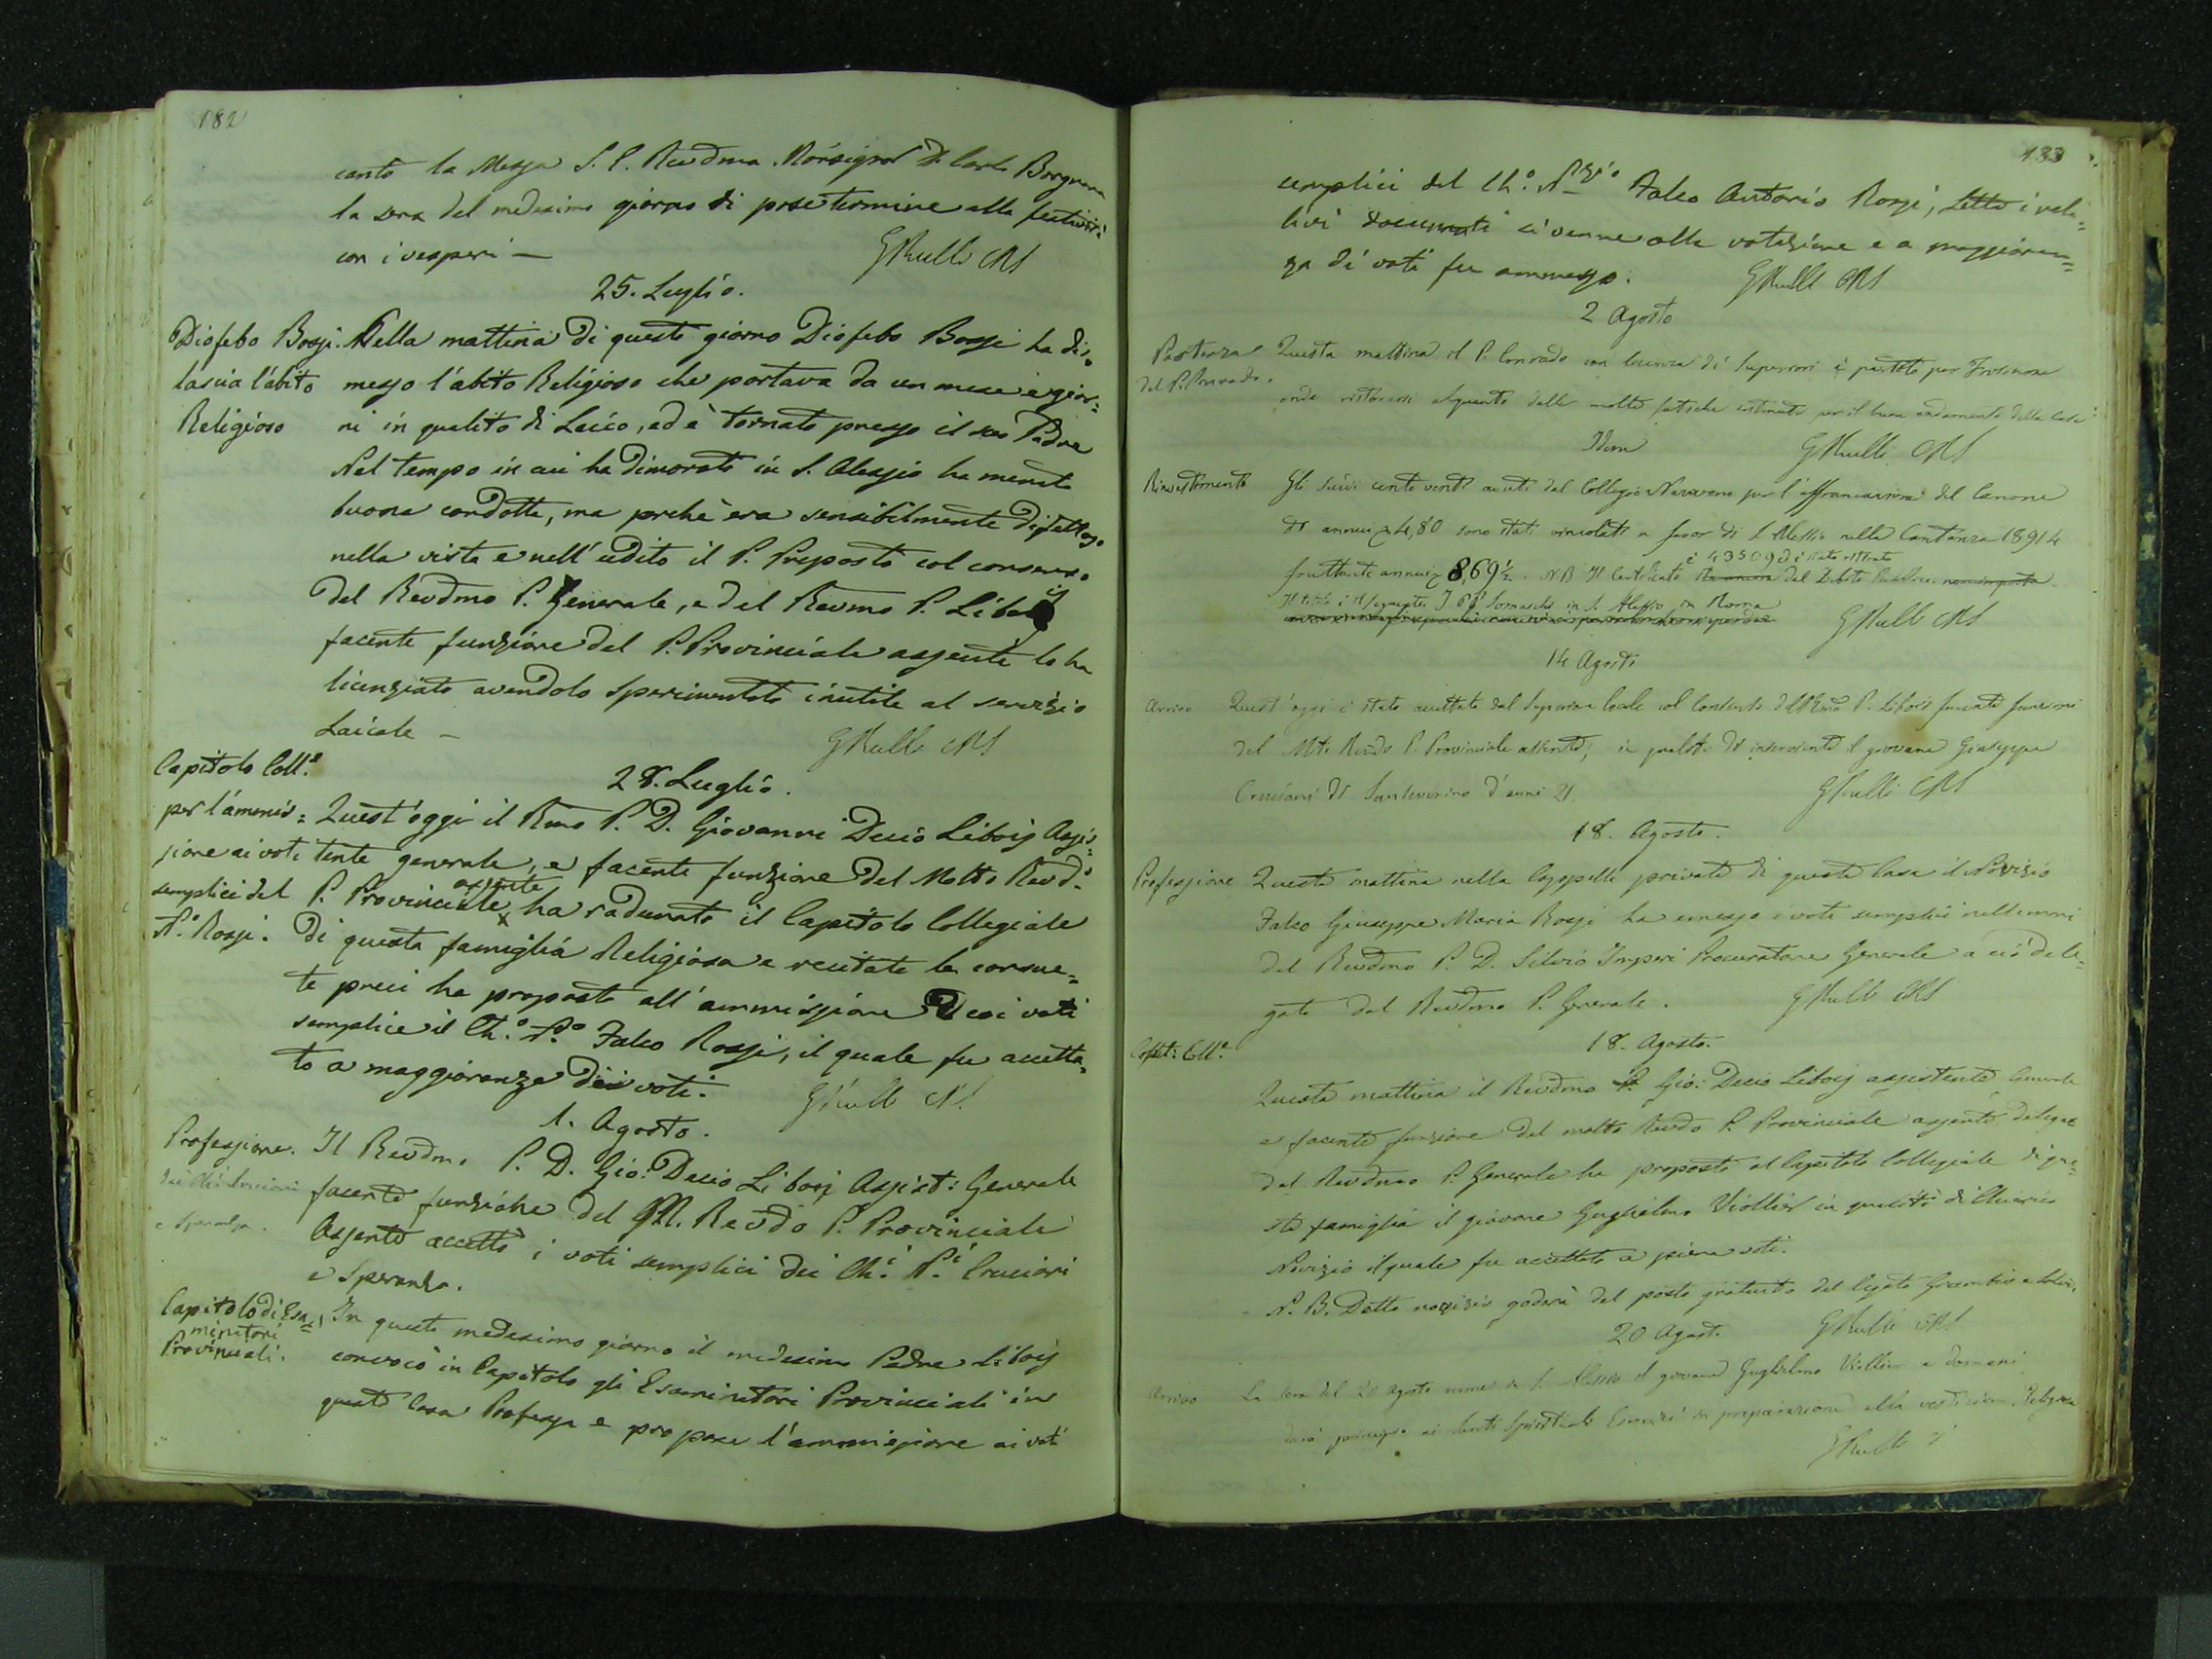 182
cantò la Messa S. E. Revdma Monsignor D. Carlo Borgnana
la sera del medesimo giorno si pose termine alla festività
con i vesperi —
GRulli CRS
25. Luglio.
Diofebo Bossi
lascia l'abito
Religioso
Nella mattina di questo giorno Diofebo Bossi ha di:
messo l'abito Religioso che portava da un mese e gior:
ni in qualità di Laico, ed è tornato presso il suo Padre
Nel tempo in cui ha dimorato in S. Alessio ha menato
buona condotta, ma perchè era sensibilmente difettoso
nella vista e nell'udito il P. Preposto col consenso
del Revdmo P. Generale, e del Revmo P. Libois
facente funzione del P. Provinciale assente lo ha
licenziato avendolo sperimentato inutile al servizio
Laicale —
GRulli CRS
28. Luglio.
Capitolo Coll.e
per l'ammis:
sione ai voti
semplici del
N.o Rossi.
Quest'oggi il Rmo P. D. Giovanni Decio Libois Assis:
tente generale, e facente funzione del Molto Revd.o
P. Provinciale assente ha radunato il Capitolo Collegiale
di questa famiglia Religiosa e recitate le consue:
te preci ha proposto all'ammissione dei voti
semplice il Ch.o N.o Falco Rossi, il quale fu accetta:
to a maggioranza dei voti.
GRulli CRS
1. Agosto.
Professione.
dei Chi Cruciani
e Speranza.
Il Revdm. P. D. Gio: Decio Libois Assist: Generale
facente funzione del M. Revdo P. Provinciale
Assente accettò i voti semplici dei Ch.i N.i Cruciani
e Speranza.
Capitolo di Esa:
minatori
Provinciali.
In questo medesimo giorno il medesimo Padre Libois
convocò in Capitolo gli Esaminatori Provinciali in
questa Casa Professa e propose l'ammissione ai voti
183
semplici del Ch.o N.zio Falco Antonio Rossi, letti i rela:
tivi documenti si venne alla votazione e a maggioran:
za di voti fu ammesso.
GRulli CRS
2 Agosto
Partenza
del P. Conrado.
Questa mattina il P. Conrado con licenza di Superiori è partito per Frosinone
onde ristorarsi alquanto dalle molte fatiche ostinate per il buon andamento della Casa
Idem
GRulli CRS
Rinvestimento
Gli scudi cento venti avuti dal Collegio Nazareno per l'affrancazione del Canone
di annui 4,80 sono stati vincolati a favor di S. Alessio nella Cantanza 18914
fruttante annui 8,69½. NB Il Certificato è 43509 di stato ritirato del Debito Pubblico
Il titolo è il seguente. I PP. Somaschi in S. Alessio in Roma
GRulli CRS
14 Agosto
Arrivo
Quest'oggi è stato accettato dal Superiore locale col consenso del Rmo P. Libois facente funzioni
del Mto Revdo P. Provinciale assente, in qualità di inserviente il giovane Giuseppe
Cruciani di Sanseverino d'anni 21.
GRulli CRS
18. Agosto.
Professione
Questa mattina nella Cappella privata di questa Casa il Novizio
Falco Giuseppe Maria Rossi ha emesso i voti semplici nelle mani
del Revdmo P. D. Silvio Imperi Procuratore Generale a ciò dele:
gato dal Revdmo P. Generale.
GRulli CRS
18. Agosto.
Capit: Coll.e
Questa mattina il Revdmo P. Gio: Decio Libois assistente Generale
e facente funzione del molto Revdo P. Provinciale assente delegato
dal Revdmo P. Generale ha proposto al Capitolo Collegiale di que:
sta famiglia il giovane Guglielmo Viollier in qualità di Chierico
Novizio il quale fu accettato a pieni voti.
N. B. Detto novizio goderà del posto gratuito del legato
20 Agost.
GRulli CRS
Arrivo
La sera del 20 Agosto venne in S. Alessio il giovane Guglielmo Viollier e domani
darà principio ai Santi Spirituali Esercizi in preparazione alla vestizione Religiosa
GRulli